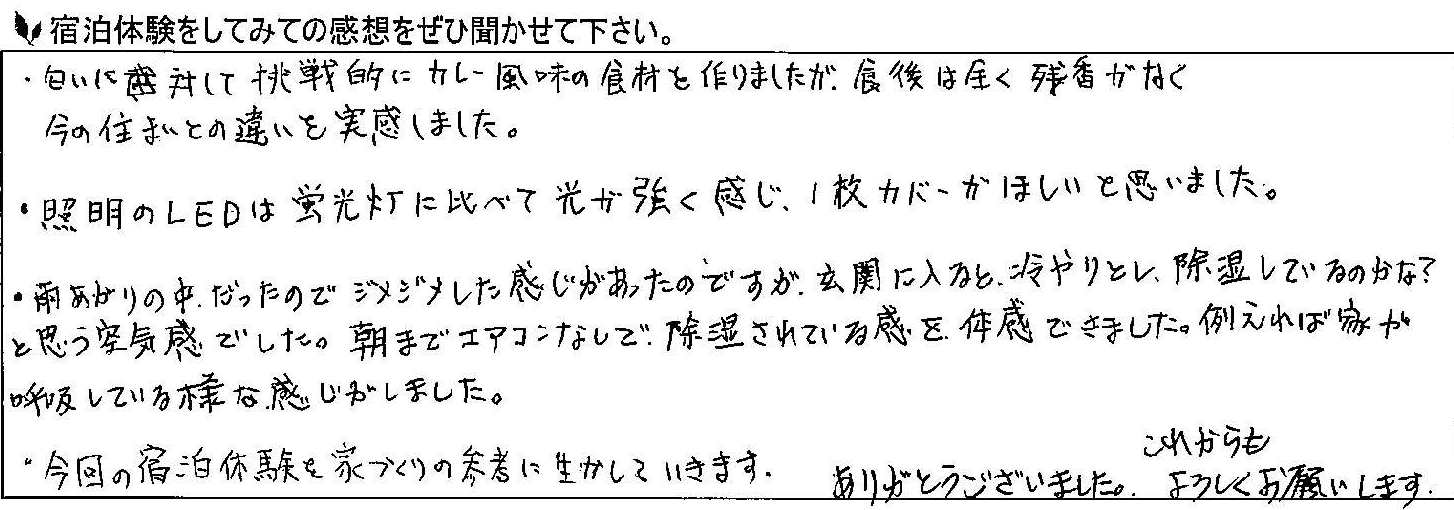 宿泊体験をしてみての感想をぜひ聞かせて下さい。
・匂いに対して挑戦的にカレー風味の食材を作りましたが、食後は全く残香がなく
今の住まいとの違いを実感しました。
・照明のLEDは蛍光灯に比べて光が強く感じ、1枚カバーがほしいと思いました。
・雨あがりの中、だったのでジメジメした感じがあったのですが、玄関に入ると、冷やりとし、除湿しているのかな?
と思う空気感でした。朝までエアコンなしで、除湿されている感を、体感できました。例えれば家が
呼吸している様な感じがしました。
・今回の宿泊体験を家づくりの参考に生かしていきます。
ありがとうございました。これからも
よろしくお願いします。